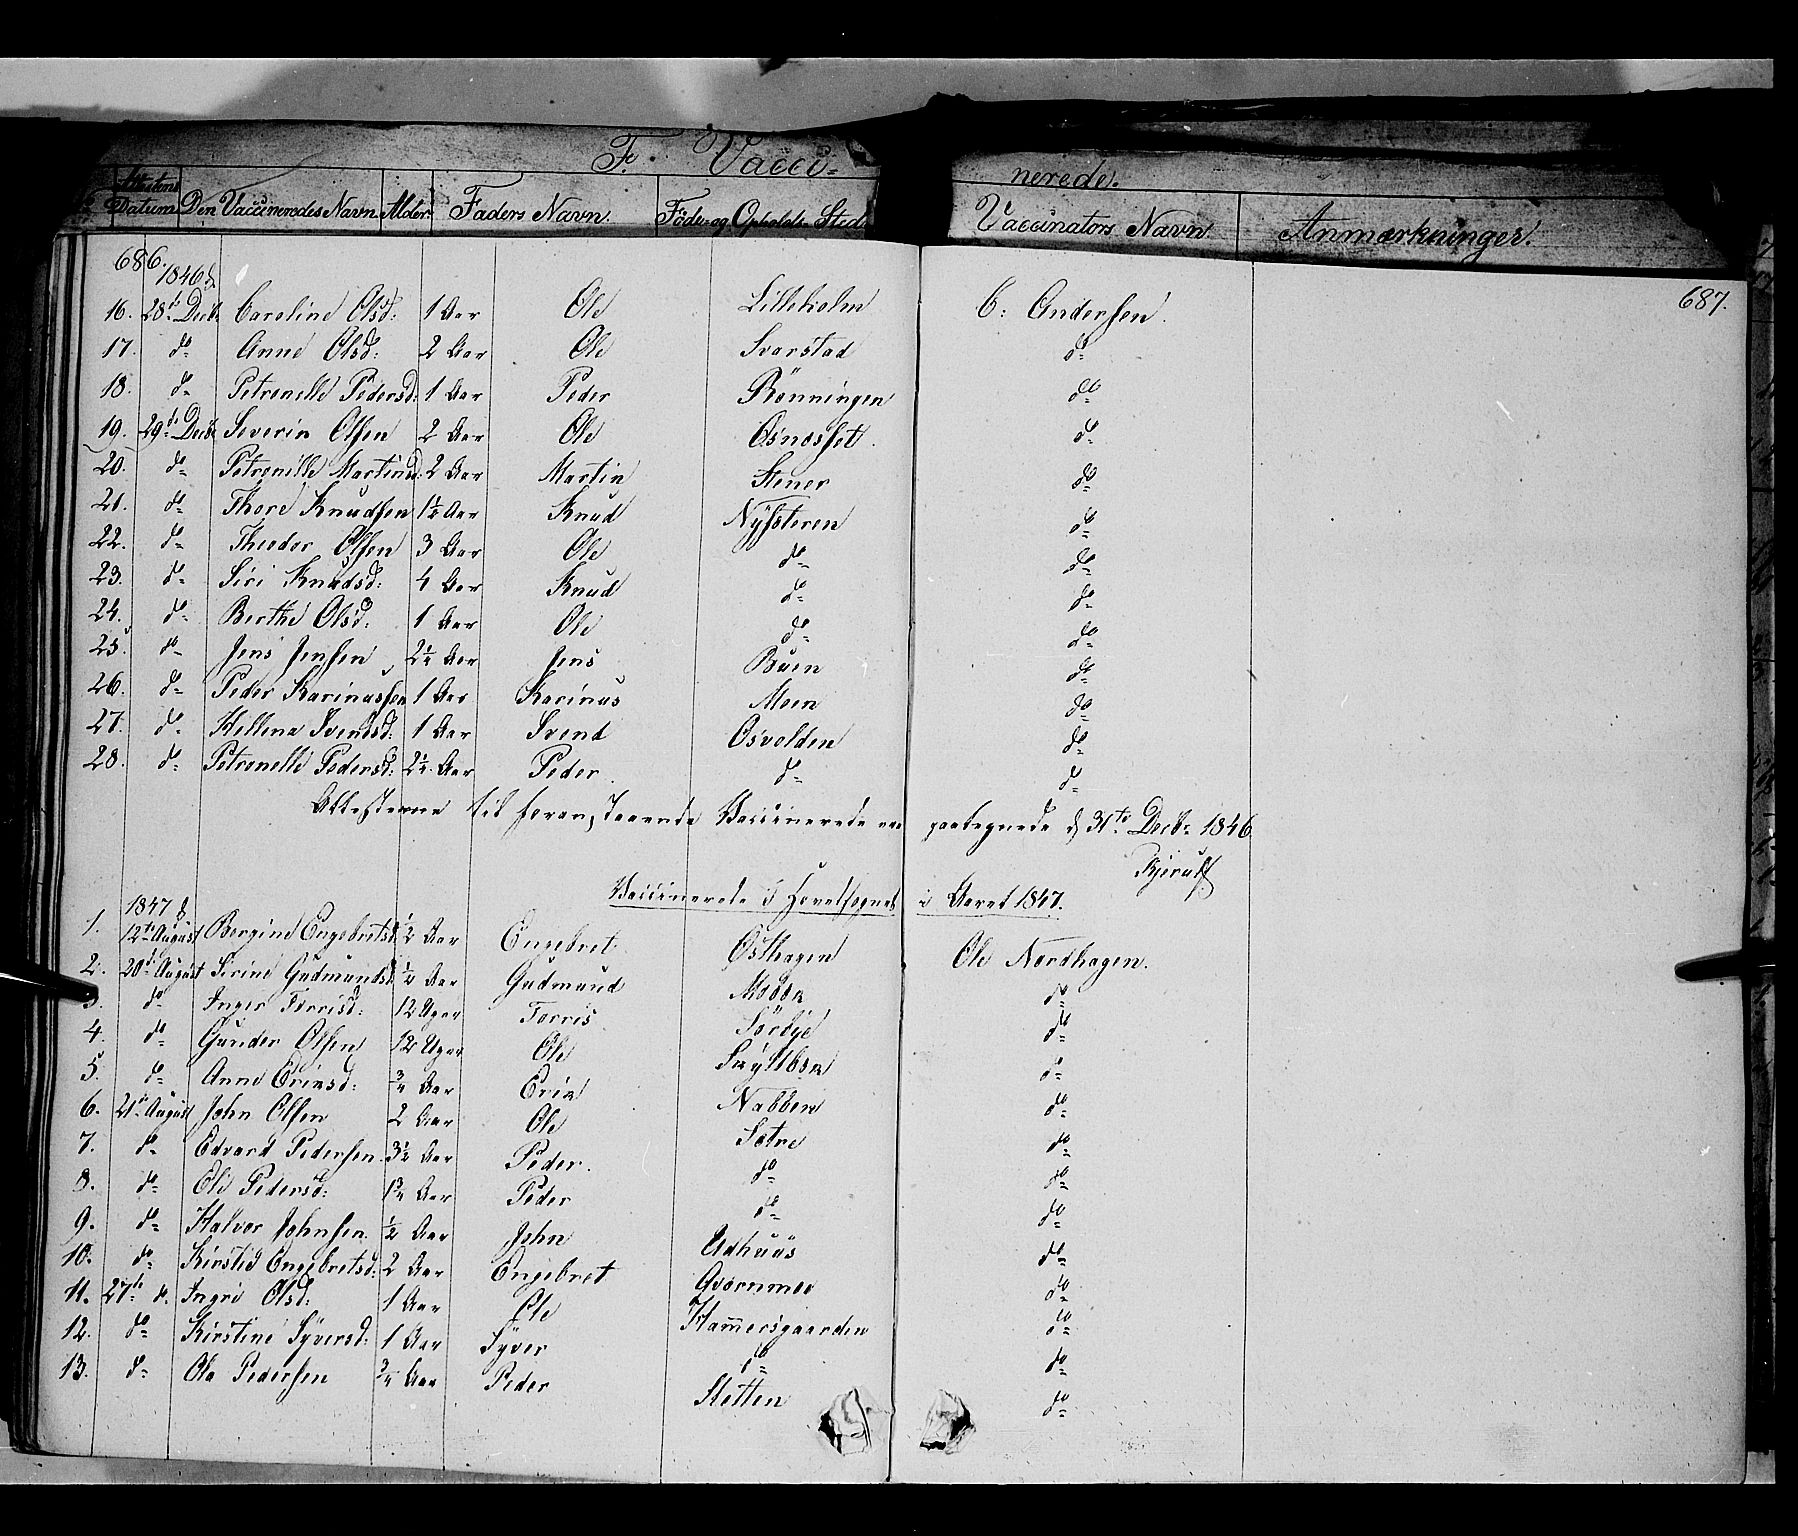 F. Vacci= nerede.
Attestens Datum Den Vaccineredes Navn. Alder. Faders Navn. Føde- og Opholds-Sted Vaccinators Navn. Anmærkninger.
686. 687.
1846
16. 28de Decbr Caroline Olsd: 1 Aar Ole Lilleholm C: Andersen.
17. do Anne Olsd: 2 Aar Ole Svarstad do
18. do Petronelle Pedersd: 1 Aar Peder Rönningen do
19. 29de Decbr Severin Olsen 2 Aar Ole Osnæsset. do
20. do Petronille Martinsd: 2 Aar Martin Stener do
21. do Thore Knudsen 1½ Aar Knud Nysteren do
22. do Theodor Olsen 3 Aar Ole do do
23. do Siri Knudsd: 4 Aar Knud do do
24. do Berthe Olsd: 1 Aar Ole do do
25. do Jens Jensen 2½ Aar Jens Buen do
26. do Peder Karinussen 1 Aar Karinus Moen do
27. do Hellena Svendsd: 1 Aar Svend Osvolden do
28. do Petronelle Pedersd: 2½ Aar Peder do do
Attesterne til foranstaaende Vaccinerede ere paategnede d 31te Decbr 1846
Kjerulf
Vaccinerede i Hovedsognet i Aaret 1847.
1847
1. 12te August Bergine Engebretsd: ½ Aar Engebret Østhagen Ole Nordhagen.
2. 20de August Sirine Gudmundsd: ½ Aar Gudmund do
3. do Inger Torrisd: 12 Uger Torris Sörbye do
4. do Gunder Olsen 12 Uger Ole do
5. do Anne Ericsd: ¾ Aar Eric Nabben do
6. 21de August John Olsen 2 Aar Ole Sætre do
7. do Edvard Pedersen 3½ Aar Peder. do do
8. do Ole Pedersd: 1¾ Aar Peder do do
9. do Halvor Johnsen ½ Aar John Udhuus do
10. do Kirstie Engebretsd: 2 Aar Engebret Qvernmoe do
11. 27de d. Ingri Olsd: 1 Aar Ole Hammersgaarden do
12. do Kirstine Syversd: 1 Aar Syver do do
13. do Ole Pedersen ¾ Aar Peder Sletten do